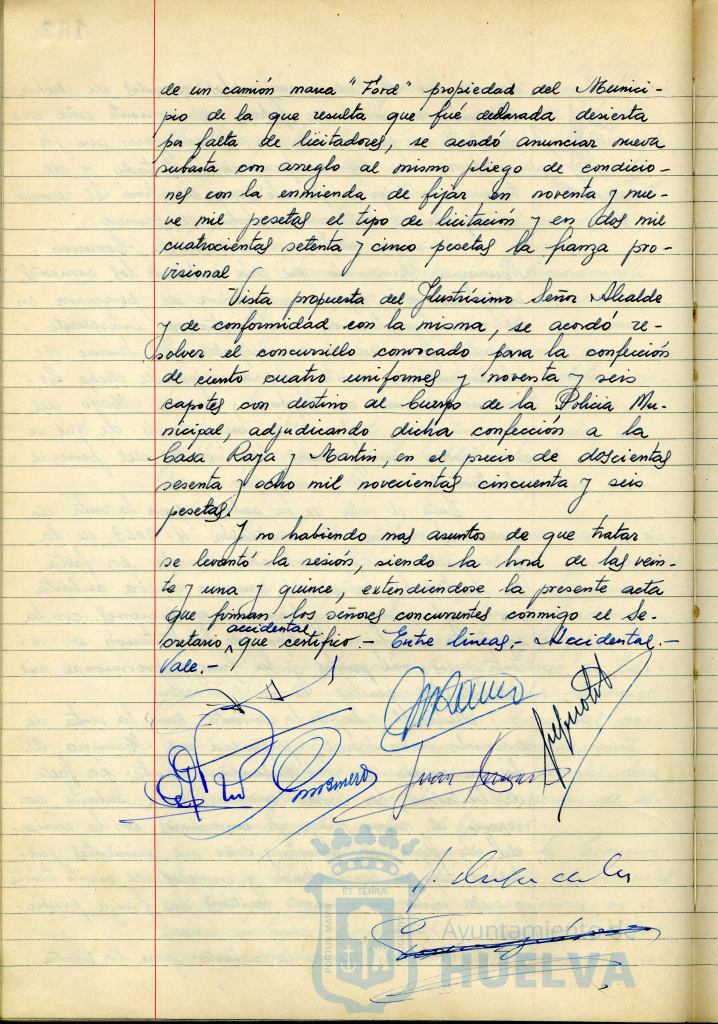 de un camión marca "Ford" propiedad del Munici-
pio de la que resulta que fué declarada desierta
por falta de licitadores, se acordó anunciar nueva
subasta con arreglo al mismo pliego de condicio-
nes con la enmienda de fijar en noventa y nue-
ve mil pesetas el tipo de licitación y en dos mil
cuatrocientas setenta y cinco pesetas la fianza pro-
visional
Vista propuesta del Ilustrísimo Señor Alcalde
y de conformidad con la misma, se acordó re-
solver el concursillo convocado para la confección
de ciento cuatro uniformes y noventa y seis
capotes con destino al Cuerpo de la Policia Mu-
nicipal, adjudicando dicha confección a la
Casa Raya y Martin, en el precio de doscientas
sesenta y ocho mil novecientas cincuenta y seis
pesetas.
Y no habiendo mas asuntos de que tratar
se levantó la sesión, siendo la hora de las vein-
te y una y quince, extendiendose la presente acta
que firman los señores concurrentes conmigo el Se-
accidental
cretario que certifico.- Entre lineas.- Accidental.-
Vale.-
Juan
ET TERRA
PORTUS MARIS
Ayuntamiento de
HUELVA